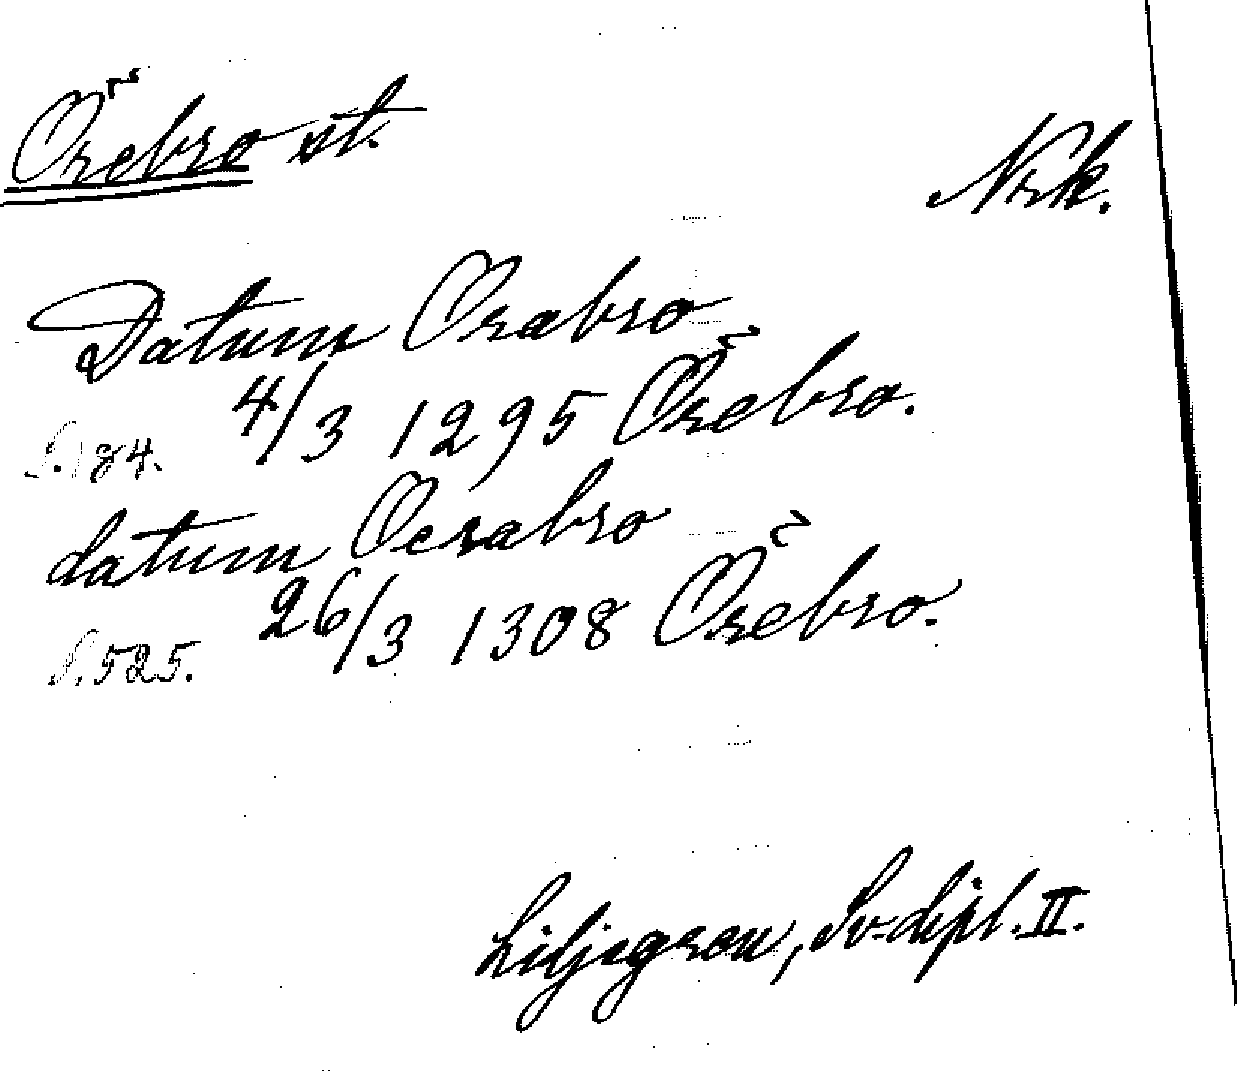 Örebro st.
Nrk.
Datum Orabro
4/3 1295 Örebro.
S. 184.
datum Oerabro
26/3 1308 Örebro.
S. 525.
Liljegren, Sv. dipl. II.